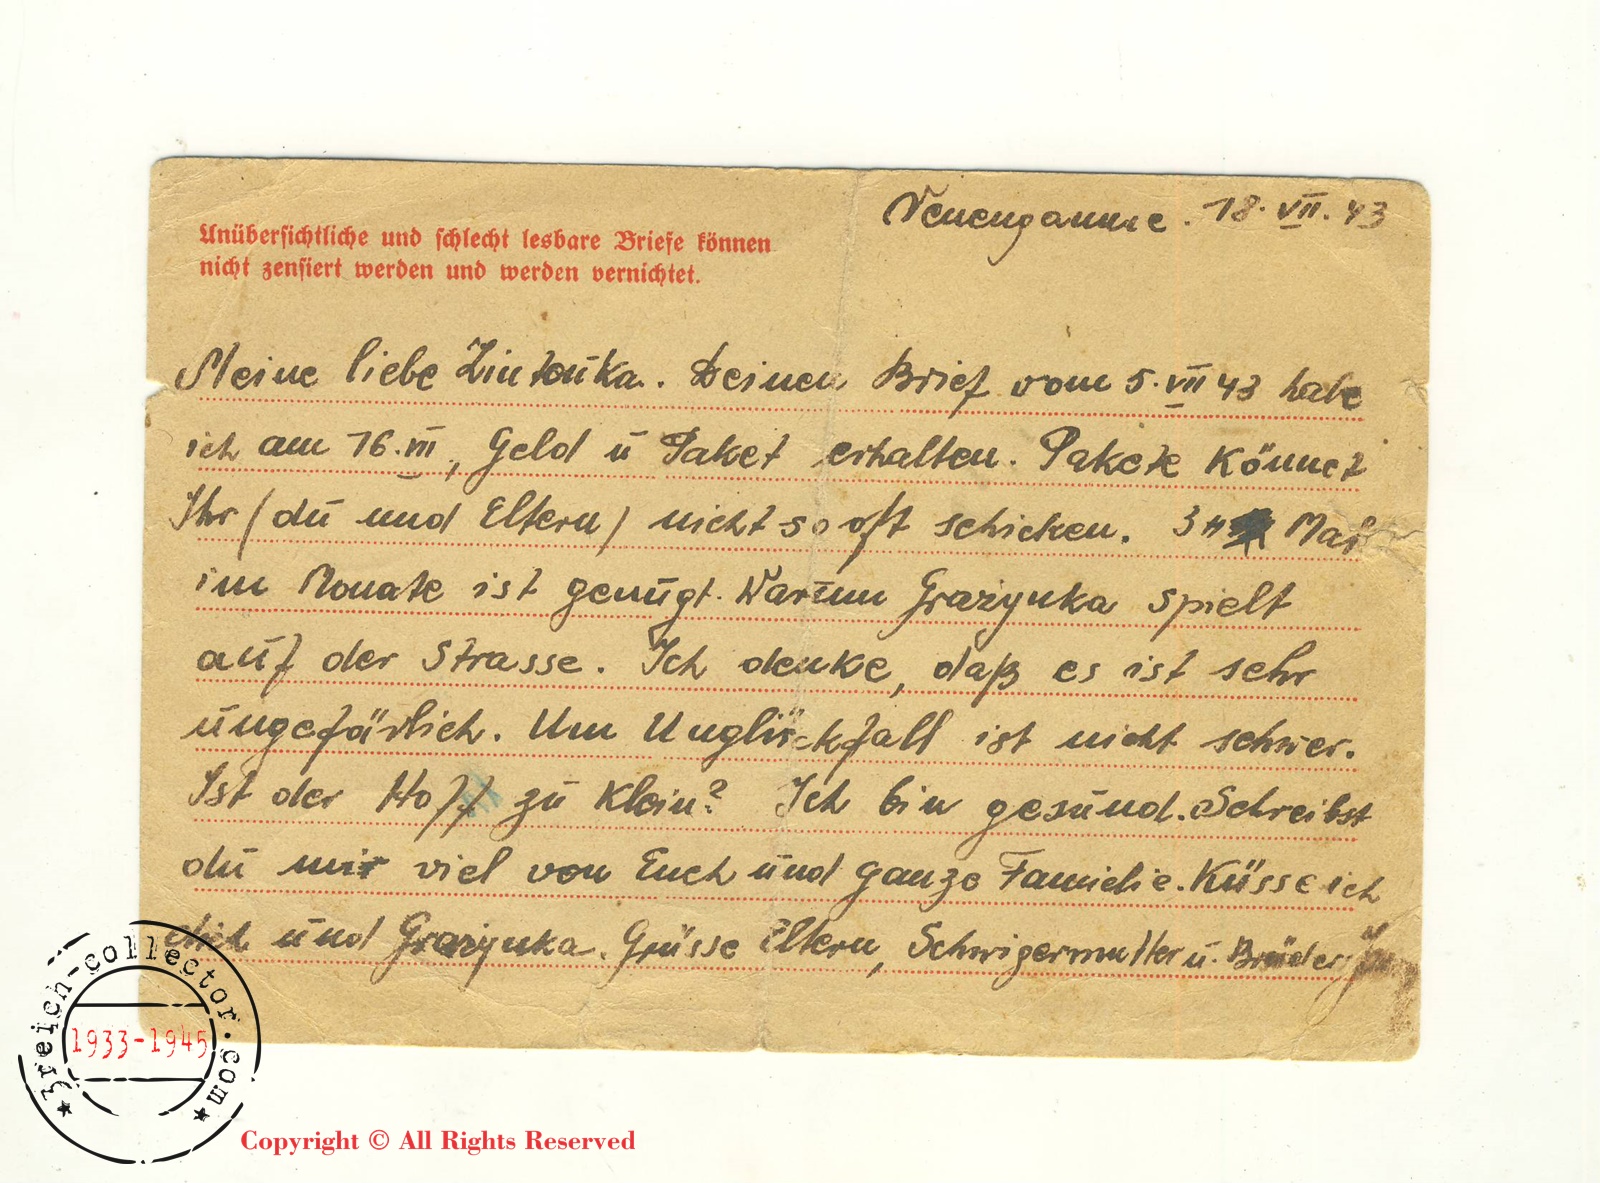 Neuengamme. 18.VII.43
Unübersichtliche und schlecht lesbare Briefe können
nicht zensiert werden und werden vernichtet.
Meine liebe . Deinen Brief vom 5.VII 43 habe
ich am 16.VII, Geld ū Paket erhalten. Pakete Könnet
Ihr (dū und Eltern) nicht so oft schicken. 3 Mal
im Monate ist genūgt. Warūm Grażynka spielt
aūf der Strasse. Ich denke, daß es ist sehr
ūngefärlich. Um Unglückfall ist nicht schwer.
Ist der Hoff zū Klein? Ich bin gesūnd. Schreibst
dū mir viel von Euch ūnd ganze Familie. Küsse ich
dich ūnd Grażynka. Grüsse Eltern, Schwigermutter ū. Brüder
3reich-collector.com
1933-1945
Copyright © All Rights Reserved